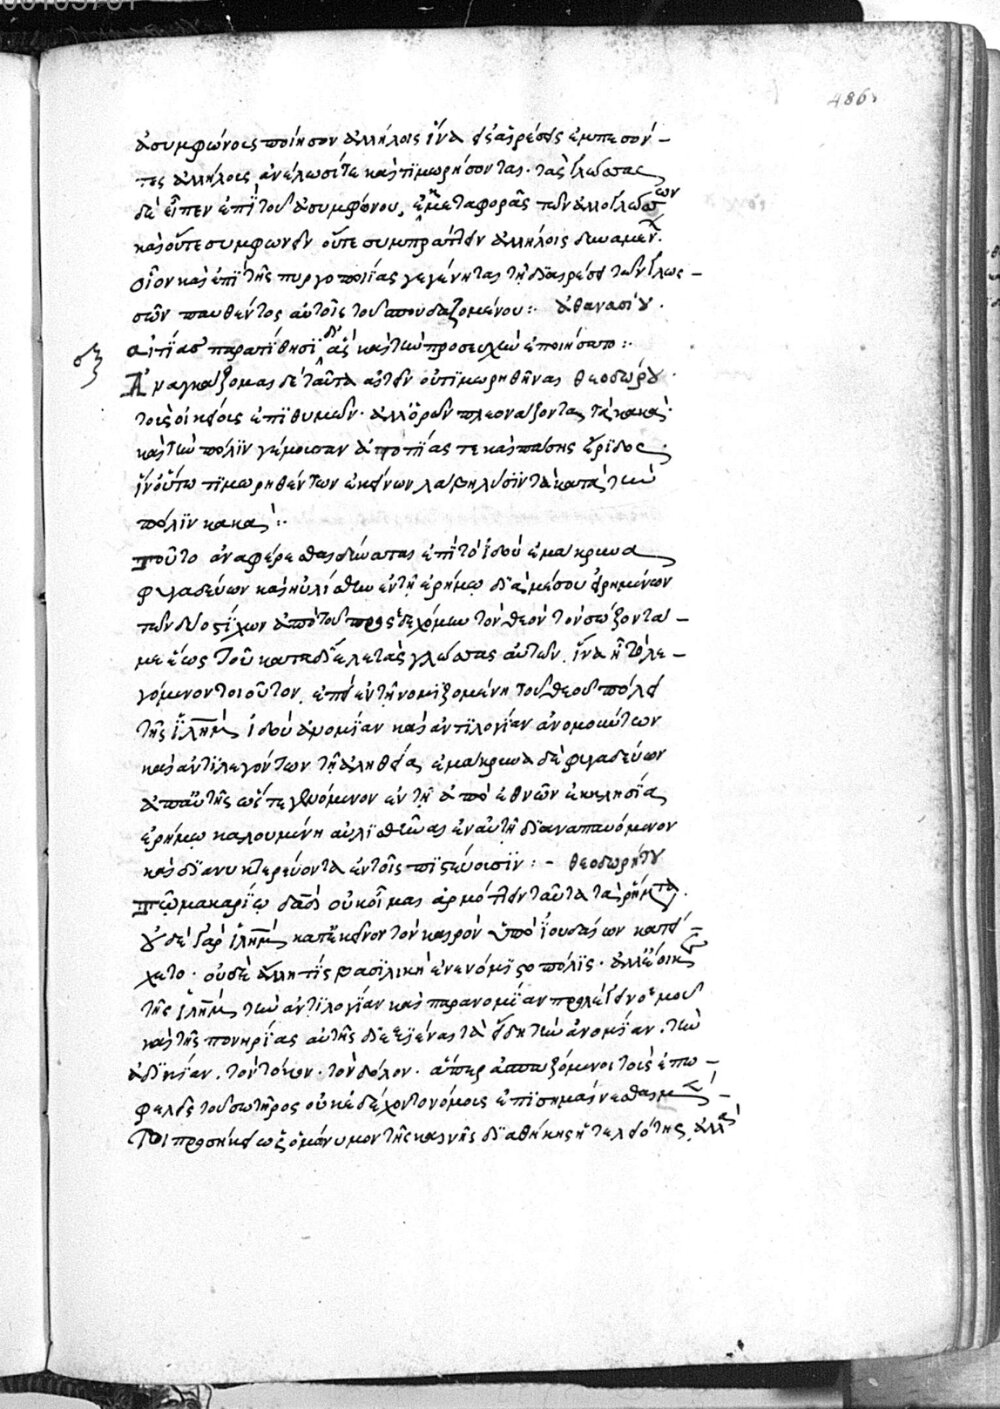 486
ἀσυμφώνους ποίησον ἀλλήλοις ἵνα ἐμπεσόν-
τες ἀλλήλοις ἀναλωσι τε καὶ τιμωρήσονται. τὰς γλώσσας
δὲ εἶπεν ἐπὶ τοῦ ἀσυμφώνου, ἐκ μεταφορᾶς τῶν ἀλλογλώσσων
καὶ οὔτε συμφωνεῖν οὔτε συμπράττειν ἀλλήλοις δυναμέν.
οἷον καὶ ἐπὶ τῆς πυργοποιίας γεγένηται τῇ διαιρέσει τῶν γλωσ-
σῶν παυθέντος αὐτοῖς τοῦ σπουδαζομένου:. ἀθανασίου.
αἰτίας παρατίθησι δι' ἃς καὶ τὴν προσευχὴν ἐποιήσατο:.
Ἀναγκάζομαι δὲ ταῦτα αἰτεῖν οὐ τιμωρηθῆναι θεοδώρου.
τοὺς οἰκείους ἐπιθυμῶν. ἀλλ' ὁρῶν πλεονάζοντα τὰ κακὰ.
καὶ τὴν πόλιν γέμουσαν ἀτοπίας τε καὶ πάσης ἔριδος.
ἵν' οὕτω τιμωρηθέντων ἐκείνων, τὰ κατὰ τὴν
πόλιν κακά:.
τοῦτο ἀναφέρεσθαι δύναται ἐπὶ τὸ ἰδοὺ ἐμάκρυνα
φυγαδεύων καὶ ηὐλίσθην ἐν τῇ ἐρήμῳ διὰ μέσου εἰρημένων
τῶν δύο στίχων ἀπὸ τοῦ προσεδεχόμην τὸν θεὸν τὸν σώζοντα
με ἕως τοῦ καταδίελε τὰς γλώσσας αὐτῶν. ἵνα ᾖ τὸ λε-
γόμενον τοιοῦτον. ἐπεὶ ἐν τῇ νομιζομένῃ τοῦ θεοῦ πόλει
τῆς ἱλὴμ ἰδοὺ ἀνομίαν καὶ ἀντιλογίαν ἀνομούντων
καὶ ἀντιλεγόντων τῇ ἀληθείᾳ ἐμάκρυνα δὲ φυγαδεύων
ἀπ' αὐτῆς ὥστε γενόμενον ἐν τῇ ἀπὸ ἐθνῶν ἐκκλησίᾳ
ἐρήμῳ καλουμένῃ αὐλισθῆναι ἐν αὐτῇ διαναπαυόμενον
καὶ διανυκτερεύοντα ἐν τοῖς πιστεύουσιν:- θεοδωρήτου
Τῷ μακαρίῳ δαδ οὐκ οἶμαι ἁρμόττειν ταῦτα τὰ ῥήματα.
οὐδὲ γὰρ ἱλὴμ κατ' ἐκεῖνον τὸν καιρὸν ὑπὸ ἰουδαίων κατεί-
χετο. οὐδὲ ἄλλη τίς βασιλικὴ ἐνενόμιστο πόλις.
τῆς ἱλὴμ τὴν ἀντιλογίαν καὶ παρανομίαν
καὶ τῆς πονηρίας αὐτῆς διεξιέναι τὰ εἴδη τὴν ἀνομίαν. τὴν
ἀδικίαν. τὸν τόκον. τὸν δόλον. ἅπερ ἀσπαζόμενοι τοὺς ἐπω-
φελεῖς τοῦ σωτῆρος οὐκ ἐδέχοντο νόμους ἐπισημαίνεσθαι
προσήκει ὡς ὁμώνυμον τῆς καινῆς διαθήκης ἡ τελειότης ἀλλὰ